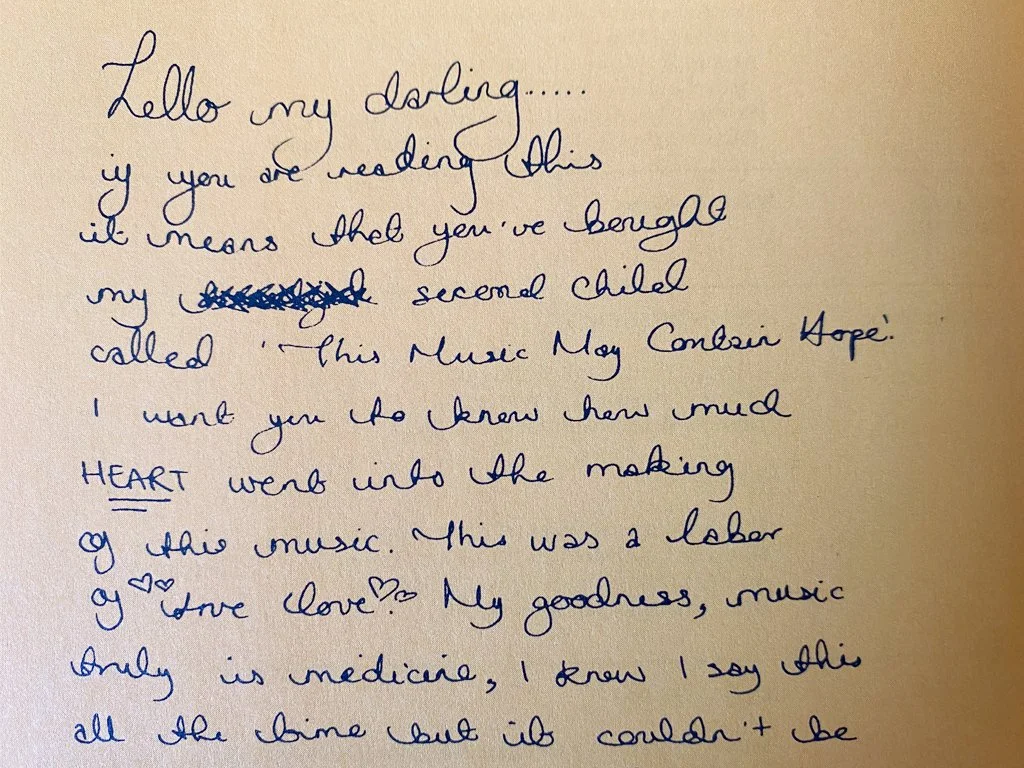 Hello my darling.....
if you are reading this
it means that you've bought
my second child
called 'This Music May Contain Hope'.
I want you to know how much
HEART went into the making
of this music. This was a labor
of true love. My goodness, music
truly is medicine, I know I say this
all the time but it couldn't be